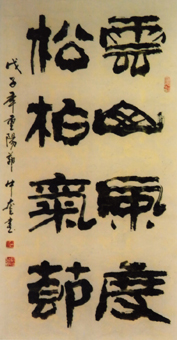 雲山風度
松柏氣節
戊子年重陽節
仲奎書